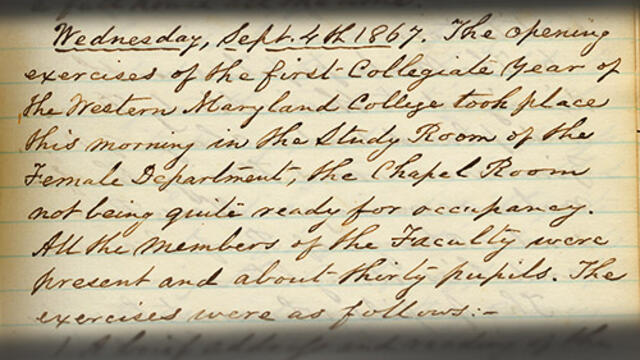 Wednesday, Sept. 4th 1867. The opening
exercises of the first Collegiate Year of
the Western Maryland College took place
this morning in the Study Room of the
Female Department, the Chapel Room
not being quite ready for occupancy.
All the members of the Faculty were
present and about thirty pupils. The
exercises were as follows:-